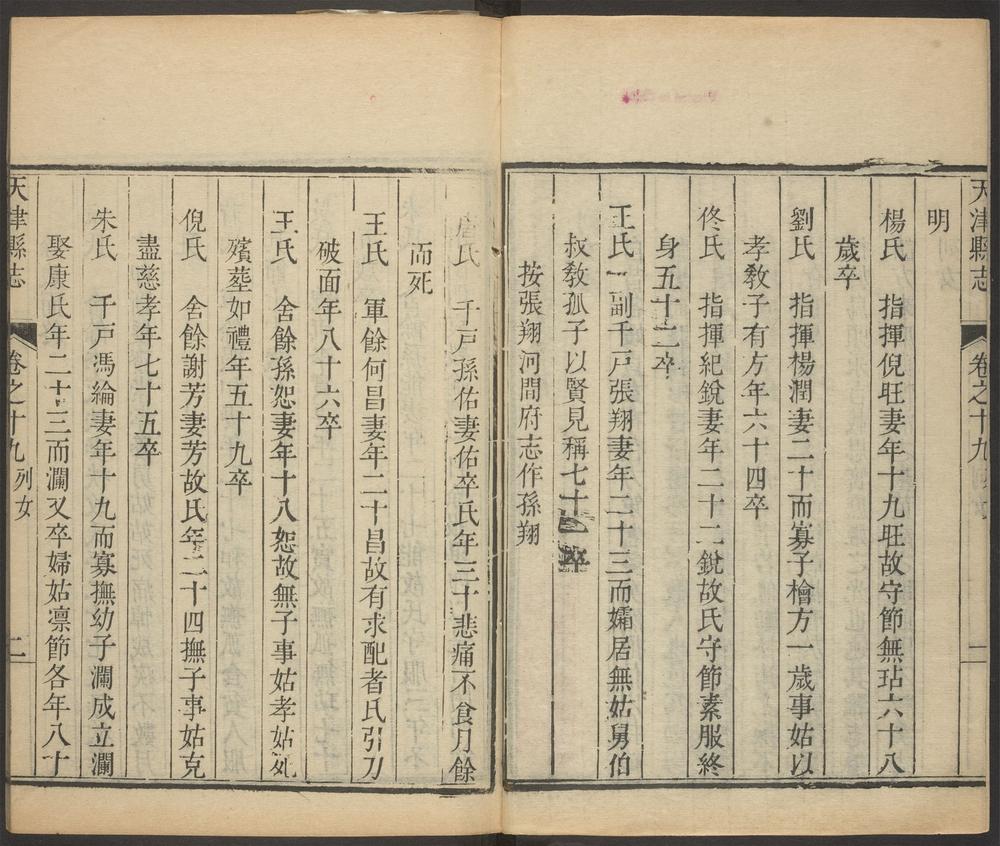 天津縣志 卷之十九 二
明
楊氏 指揮倪旺妻年十九旺故守節無玷六十八
歲卒
劉氏 指揮楊潤妻二十而寡子檜方一歲事姑以
孝敎子有方年六十四卒
佟氏 指揮紀銳妻年二十二銳故氏守節素服終
身五十二卒
王氏 副千戸張翔妻年二十三而孀居無姑舅伯
叔敎孤子以賢見稱七十四卒
按張翔河間府志作孫翔
唐氏 千戸孫佑妻佑卒氏年三十悲痛不食月餘
而死
王氏 軍餘何昌妻年二十昌故有求配者氏引刀
破面年八十六卒
王氏 舍餘孫恕妻年十八恕故無子事姑孝姑死
殯塟如禮年五十九卒
倪氏 舍餘謝芳妻芳故氏年二十四撫子事姑克
盡慈孝年七十五卒
朱氏 千戸馮綸妻年十九而寡撫幼子瀾成立瀾
娶康氏年二十三而瀾又卒婦姑凛節各年八十
天津縣志 卷之十九 列女 二